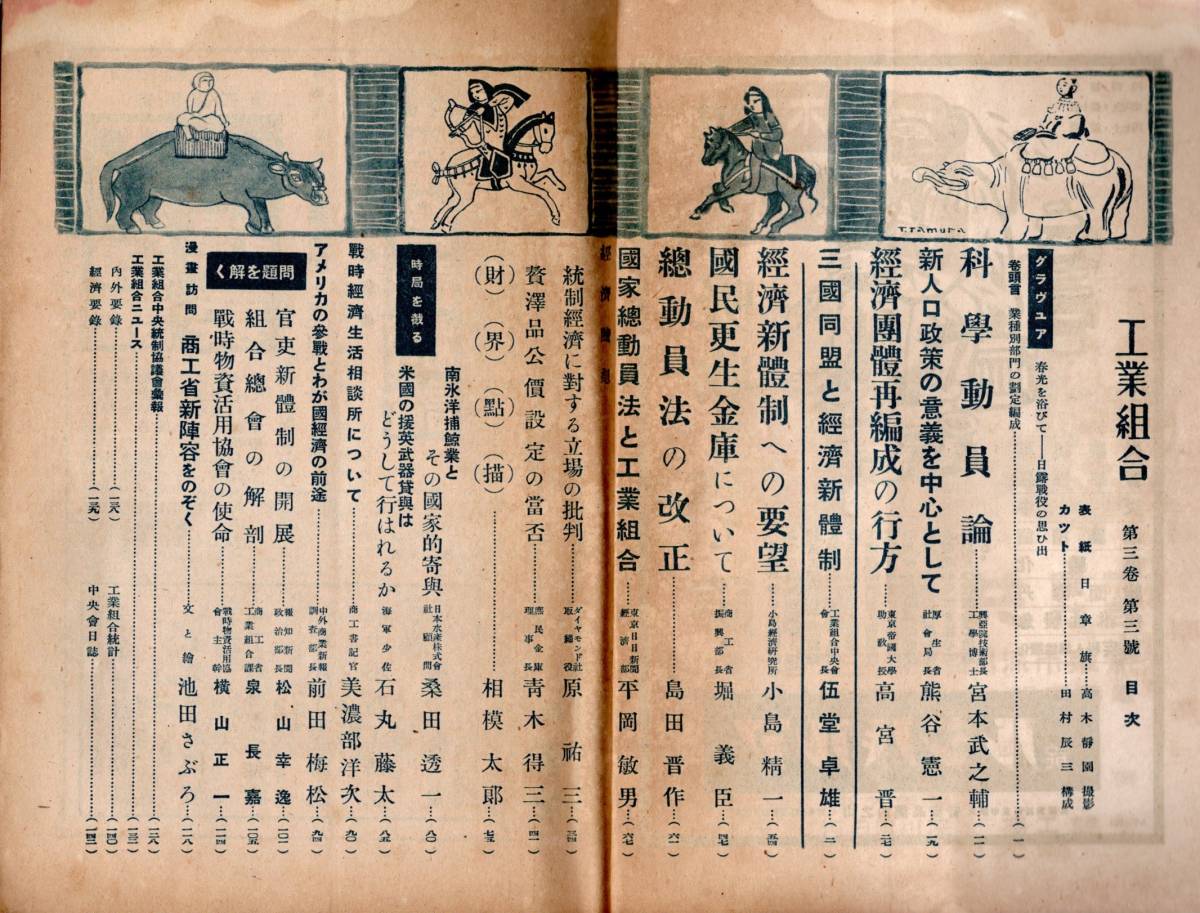 工業組合 第三卷 第三號 目次
表紙 日章旗……高木靜園撮影
カツト……田村辰三構成
グラヴュア 春光を浴びて——日露戰役の思ひ出
卷頭言 業種別部門の劃定編成……(一)
科學動員論……興亞院技術部長 工學博士 宮本武之輔……(二)
新人口政策の意義を中心として……厚生省 社會局長 熊谷憲一……(一九)
經濟團體再編成の行方……東京帝國大學 助教授 高宮晋……(二七)
三國同盟と經濟新體制……工業組合中央會 會長 伍堂卓雄……
經濟新體制への要望……小島經濟研究所 小島精一……(五四)
國民更生金庫について……商工省 振興部長 堀義臣……(四七)
總動員法の改正……島田晋作……(六一)
國家總動員法と工業組合……東京日日新聞 經濟部 平岡敏男……(六七)
經濟
統制經濟に對する立場の批判……ダイヤモンド社 取締役 原祐三……(三四)
贅澤品公價設定の當否……庶民金庫 理事長 青木得三……(四一)
(財)(界)(點)(描)……相模太郎……(七五)
時局を截る
南氷洋捕鯨業とその國家的寄與……日本水産株式會社 顧問 桑田透一……(八〇)
米國の援英武器貸與はどうして行はれるか……海軍少佐 石丸藤太……(八五)
戰時經濟生活相談所について……商工書記官 美濃部洋次……(九〇)
アメリカの參戰とわが國經濟の前途……中外商業新報 調査部長 前田梅松……(九四)
問題を解く
官吏新體制の開展……報知新聞 政治部長 松山幸逸……(一〇一)
組合總會の解剖……商工省 工業組合課 泉長嘉……(一〇五)
戰時物資活用協會の使命……戰時物資活用協會 主幹 横山正一……(一一四)
漫畫訪問 商工省新陣容をのぞく……文と繪 池田さぶろ……(一一八)
工業組合中央統制協議會彙報……(一二八)
工業組合ニュース……(一三一)
内外要錄……(一三六)
工業組合統計……(一四〇)
經濟要錄……(一三九)
中央會日誌……(一四二)
T.TAMURA